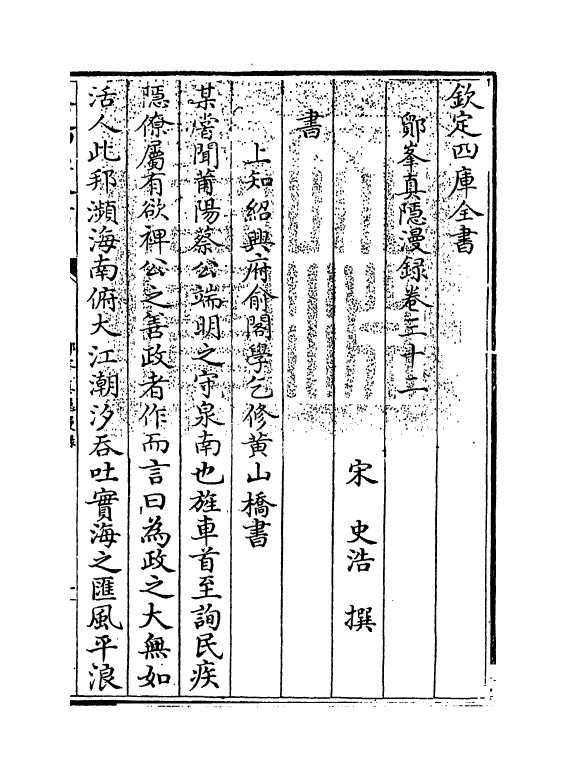 欽定四庫全書
鄮峯真隱漫録卷三十二
宋 史浩 撰
書
上知紹興府俞閣學乞修黄山橋書
某嘗聞莆陽蔡公端明之守泉南也旌車首至詢民疾
隱僚屬有欲裨公之善政者作而言曰為政之大無如
活人此邦瀕海南俯大江潮汐吞吐實海之匯風平浪